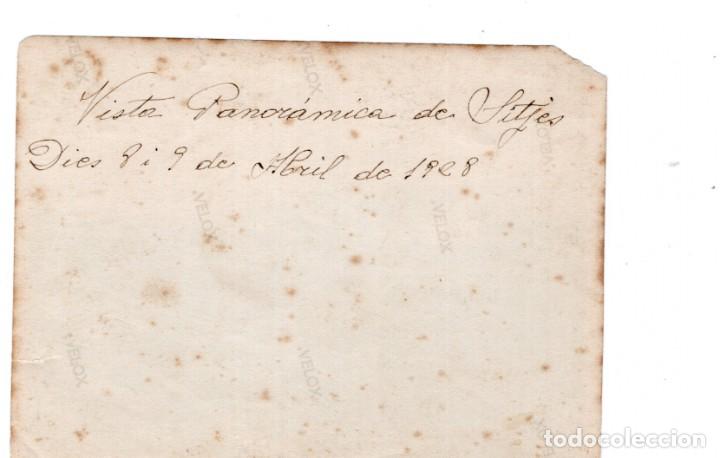 VELOX
Vista Panorámica de Sitjes
VELOX
Dies 8 i 9 de Abril de 1928
VELOX
VELOX
VELOX
VELOX
VELOX
todocoleccion